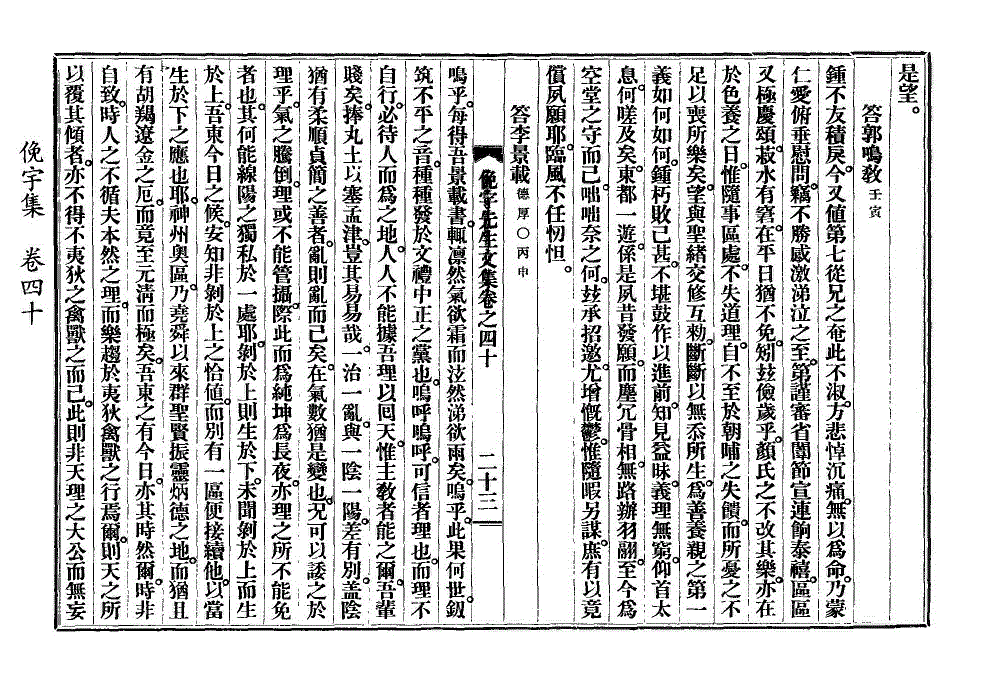 是望。
答郭鳴敎 壬寅
鍾不友積戾。今又値第七從兄之奄此不淑。方悲悼沉痛。無以爲命。乃蒙
仁愛俯垂慰問。竊不勝感激涕泣之至。第謹審省闈節宣連餉泰禧。區區
又極慶頌。菽水有窘。在平日猶不免。矧玆儉歲乎。顔氏之不改其樂。亦在
於色養之日。惟隨事區處。不失道理。自不至於朝晡之失饋。而所憂之不
足以喪所樂矣。望與聖緖交修互勑。斷斷以無忝所生。爲善養親之第一
義如何如何。鍾朽敗已甚。不堪鼓作以進前。知見益昧。義理無窮。仰首太
息。何嗟及矣。東都一遊。係是夙昔發願。而塵冗骨相。無路辦羽翮。至今爲
空堂之守而已。咄咄奈之何。玆承招邀。尤增慨鬱。惟隨暇另謀。庶有以竟
償夙願耶。臨風不任忉怛。
答李景載 德厚○丙申
俛宇先生文集卷之四十 二十三
嗚乎。每得吾景載書。輒凜然氣欲霜而泫然涕欲雨矣。嗚乎。此果何世。釼
筑不平之音。種種發於文禮中正之黨也。嗚呼嗚呼。可信者理也。而理不
自行。必待人而爲之地。人人不能據吾理以回天。惟主敎者能之爾。吾輩
賤矣。捧丸土以塞孟津。豈其易易哉。一治一亂。與一陰一陽。差有別。盖陰
猶有柔順貞簡之善者。亂則亂而已矣。在氣數猶是變也。況可以諉之於
理乎。氣之騰倒。理或不能管攝。際此而爲純坤爲長夜。亦理之所不能免
者也。其何能線陽之獨私於一處耶。剝於上則生於下。未聞剝於上而生
於上。吾東今日之候。安知非剝於上之恰値。而別有一區便接續他。以當
生於下之應也耶。神州奧區。乃堯舜以來群聖賢振靈炳德之地。而猶且
有胡羯遼金之厄。而竟至元淸而極矣。吾東之有今日。亦其時然爾。時非
自致。時人之不循夫本然之理。而樂趨於夷狄禽獸之行焉爾。則天之所
以覆其傾者。亦不得不夷狄之禽獸之而已。此則非天理之大公而無妄
俛宇集 卷四十